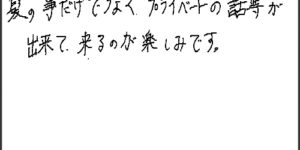 髪の事だけでなく、プライベートの話等が
出来て、来るのが楽しみです。